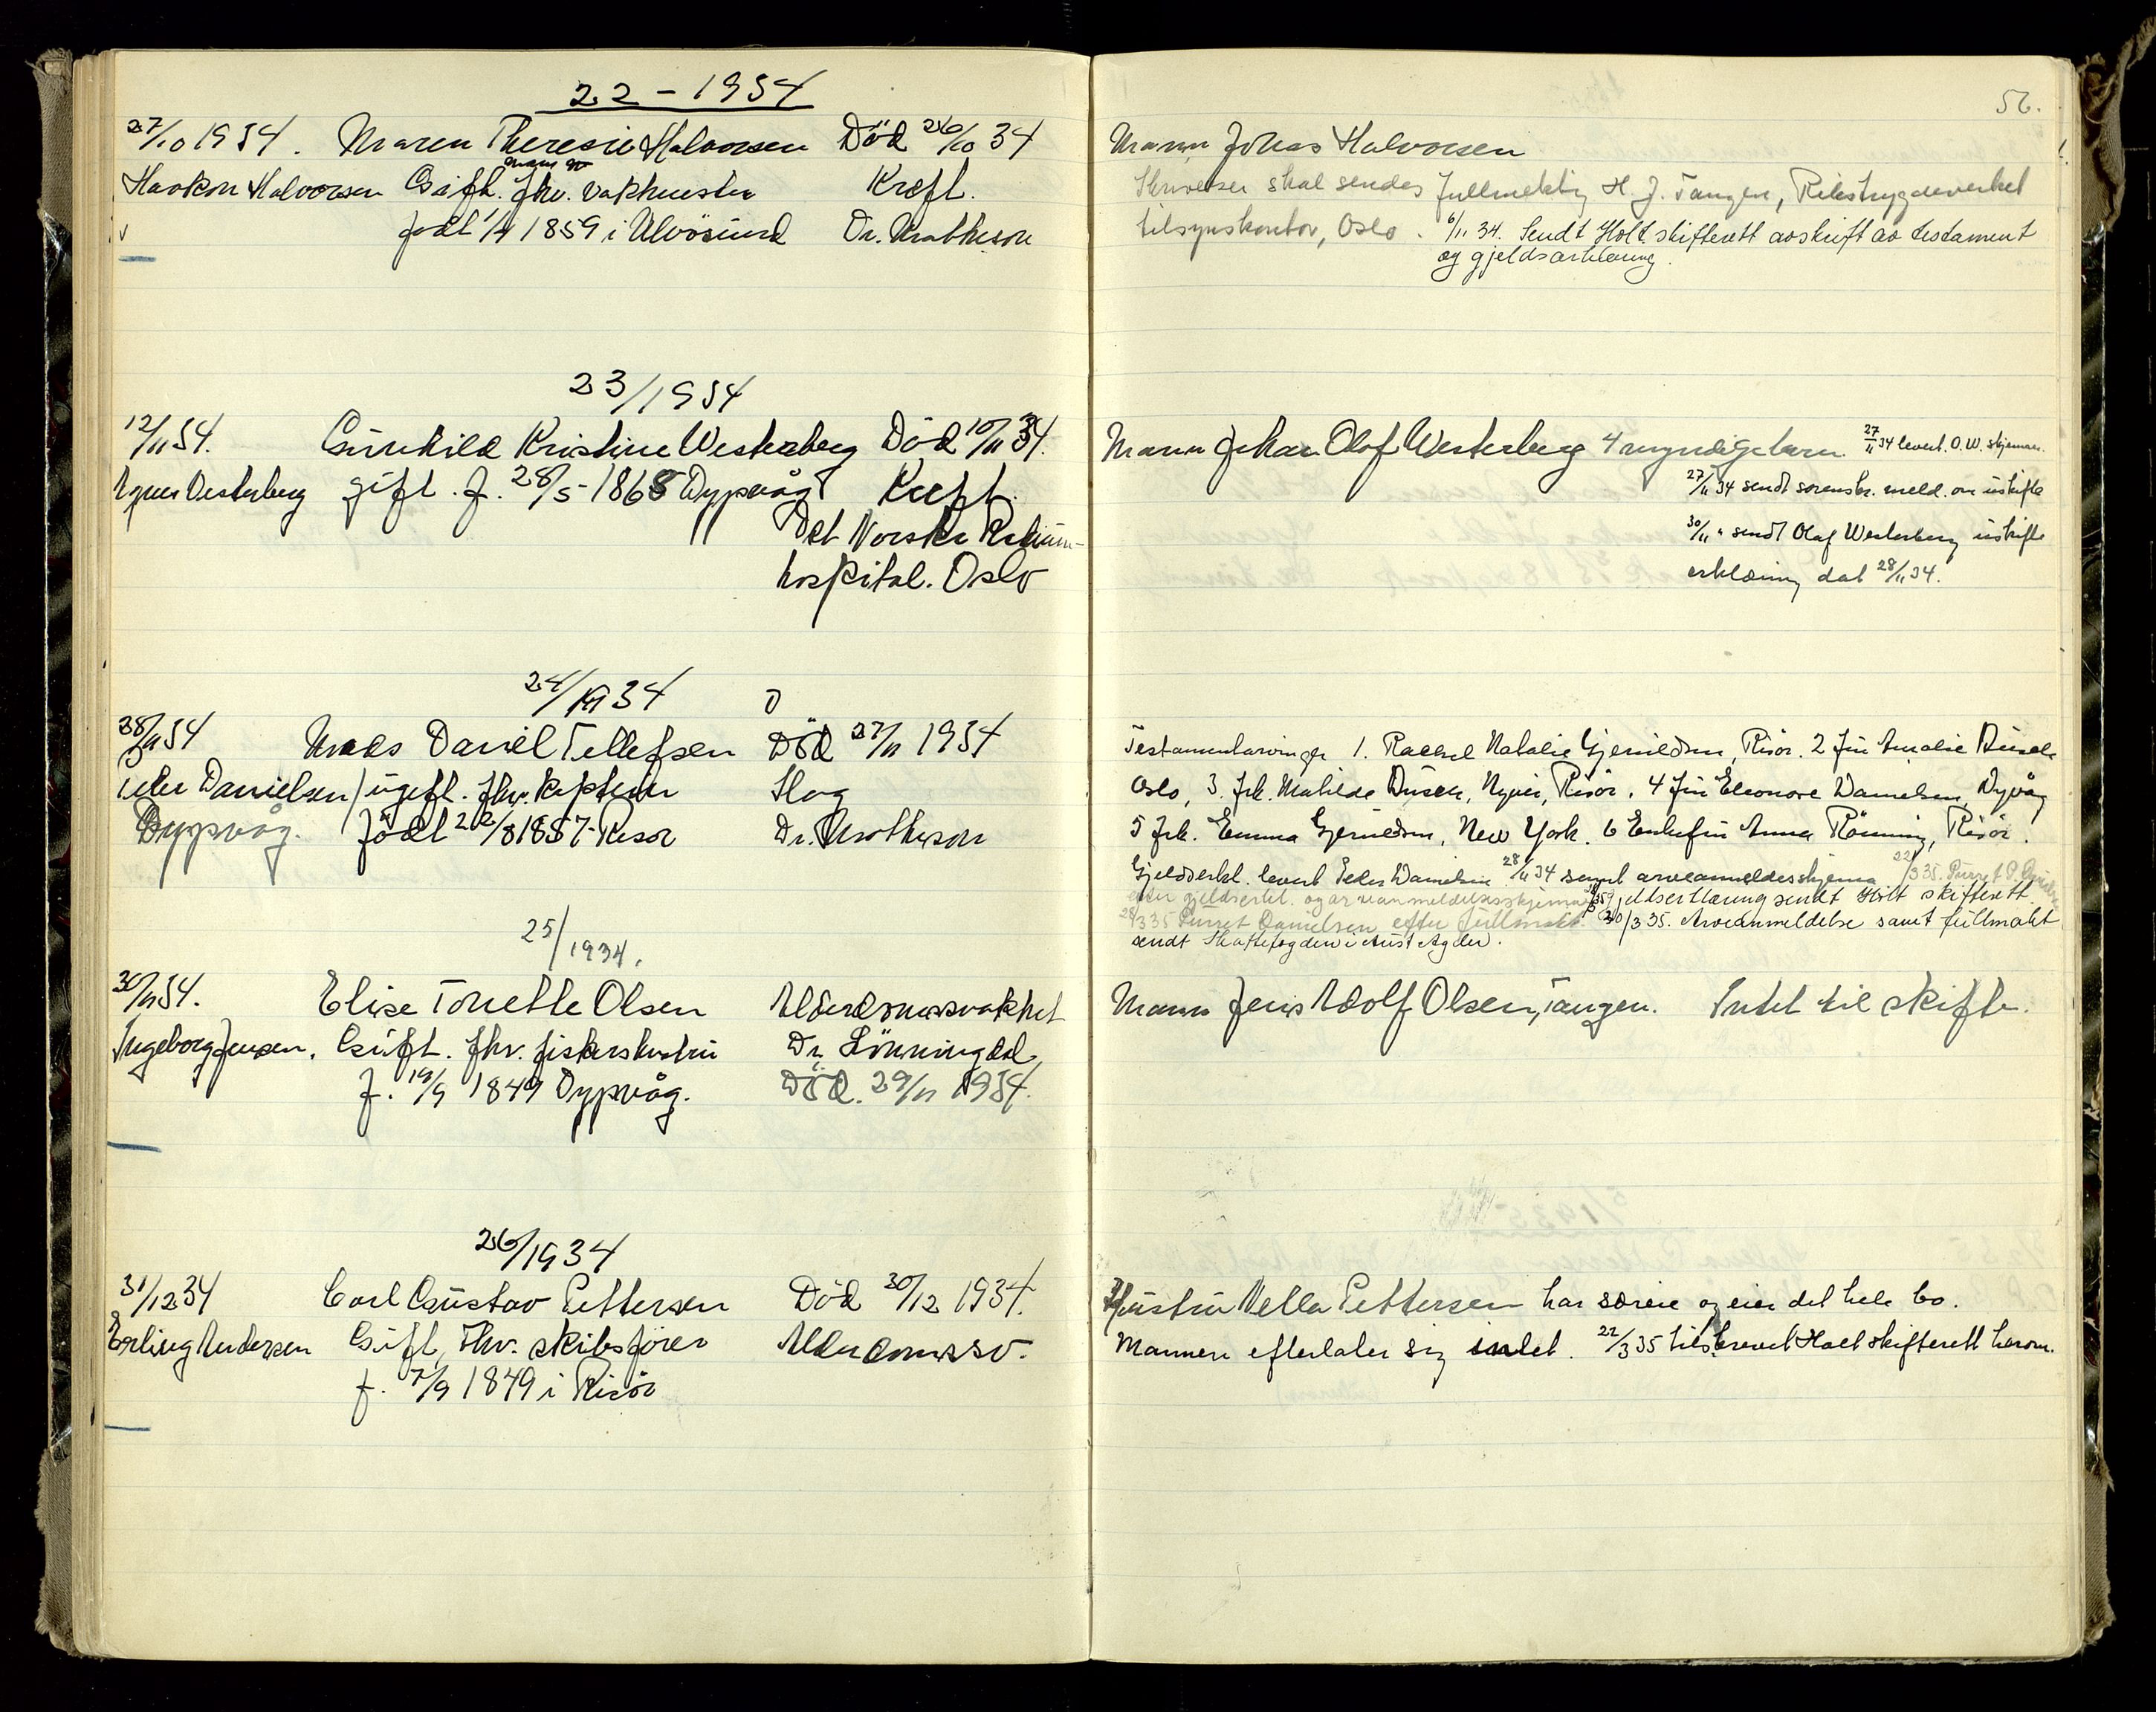 22 - 1934
27/10 1934. Maren Theresie Halvorsen Död 26/10 34
Haakon Halvorsen Gift. fhv. vaktmester Kreft.
född 1859 i Ulvösund Dr. Matheson
23/1934
12/11 34. Gunhild Kristine Westerberg Död 10/11 34.
Agnes Westerberg gift. f. 28/5-1868 Dypvåg Kreft.
Det Norske Radium-
hospital. Oslo
24/1934
28/11 34 Mads Daniel Tellefsen Död 27/11 1934
Peder Danielsen / ugift. fhv. kaptein Slag
Dypvåg. född 22/8 1857 Risör Dr. Matheson
25/1934.
30/11 34. Elise Tonette Olsen Alderdomssvakhet
Ingeborg Jensen. Gift. fhv. fiskerhustru Dr. Lönningdal
f. 19/9 1849 Dypvåg. Död. 29/11 1934.
26/1934
31/12 34 Carl Gustav Pettersen Död 30/12 1934.
Erling Andersen Gift, Fhv. skibsförer Alderdomssv.
f. 7/9 1849 i Risör
56.
Mann Johas Halvorsen
Skrivelser skal sendes fullmektig H. J. Tangen, Rikstrygdeverket
tilsynskontor, Oslo. 6/11 34. Sendt Holt skifterett avskrift av testament
og gjeldserklæring.
Mann Johan Olof Westerberg 4 myndige barn. 27/11 34 levert O. W. skjemaer.
27/11 34 sendt sorenskr. meld. om uskifte
30/11 " sendt Olaf Westerberg uskifte
erklæring dat 28/11 34.
Testamentarvinger 1. Rachel Natalie Gjeruldsen, Risör. 2 fru Amalie
Oslo, 3. Frk. Mathilde Risör. 4 Fru Eleonore Danielsen, Dypvåg
5 Frk. Emma Gjeruldsen, New York. 6 Enkefru Anna Rönning, Risör.
Gjeldserkl. levert Peder Danielsen 28/11 34 samt arveanmeldelsesskjema 22/3 35. Purret P. Danielsen
efter gjeldserkl. og arveanmeldelsesskjema gjeldserklæring sendt Holt skifterett.
28/3 35 Purret Danielsen efter fullmakt. 30/3 35. Arveanmeldelse samt fullmakt
sendt Skattefogden i Aust Agder.
Mann Jens Adolf Olsen, Tangen. Intet til skifte.
Hustru Nella Pettersen har særeie og eier det hele bo.
Mannen efterlater sig intet. 22/3 35 tilskrevet Holt skifterett herom.